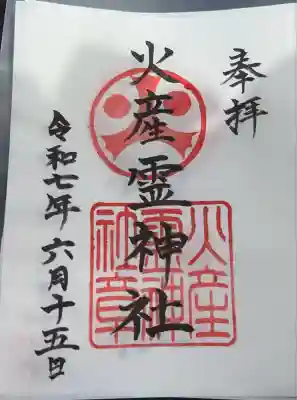 奉拝
火産霊神社
火産霊神社章
令和七年六月十五日